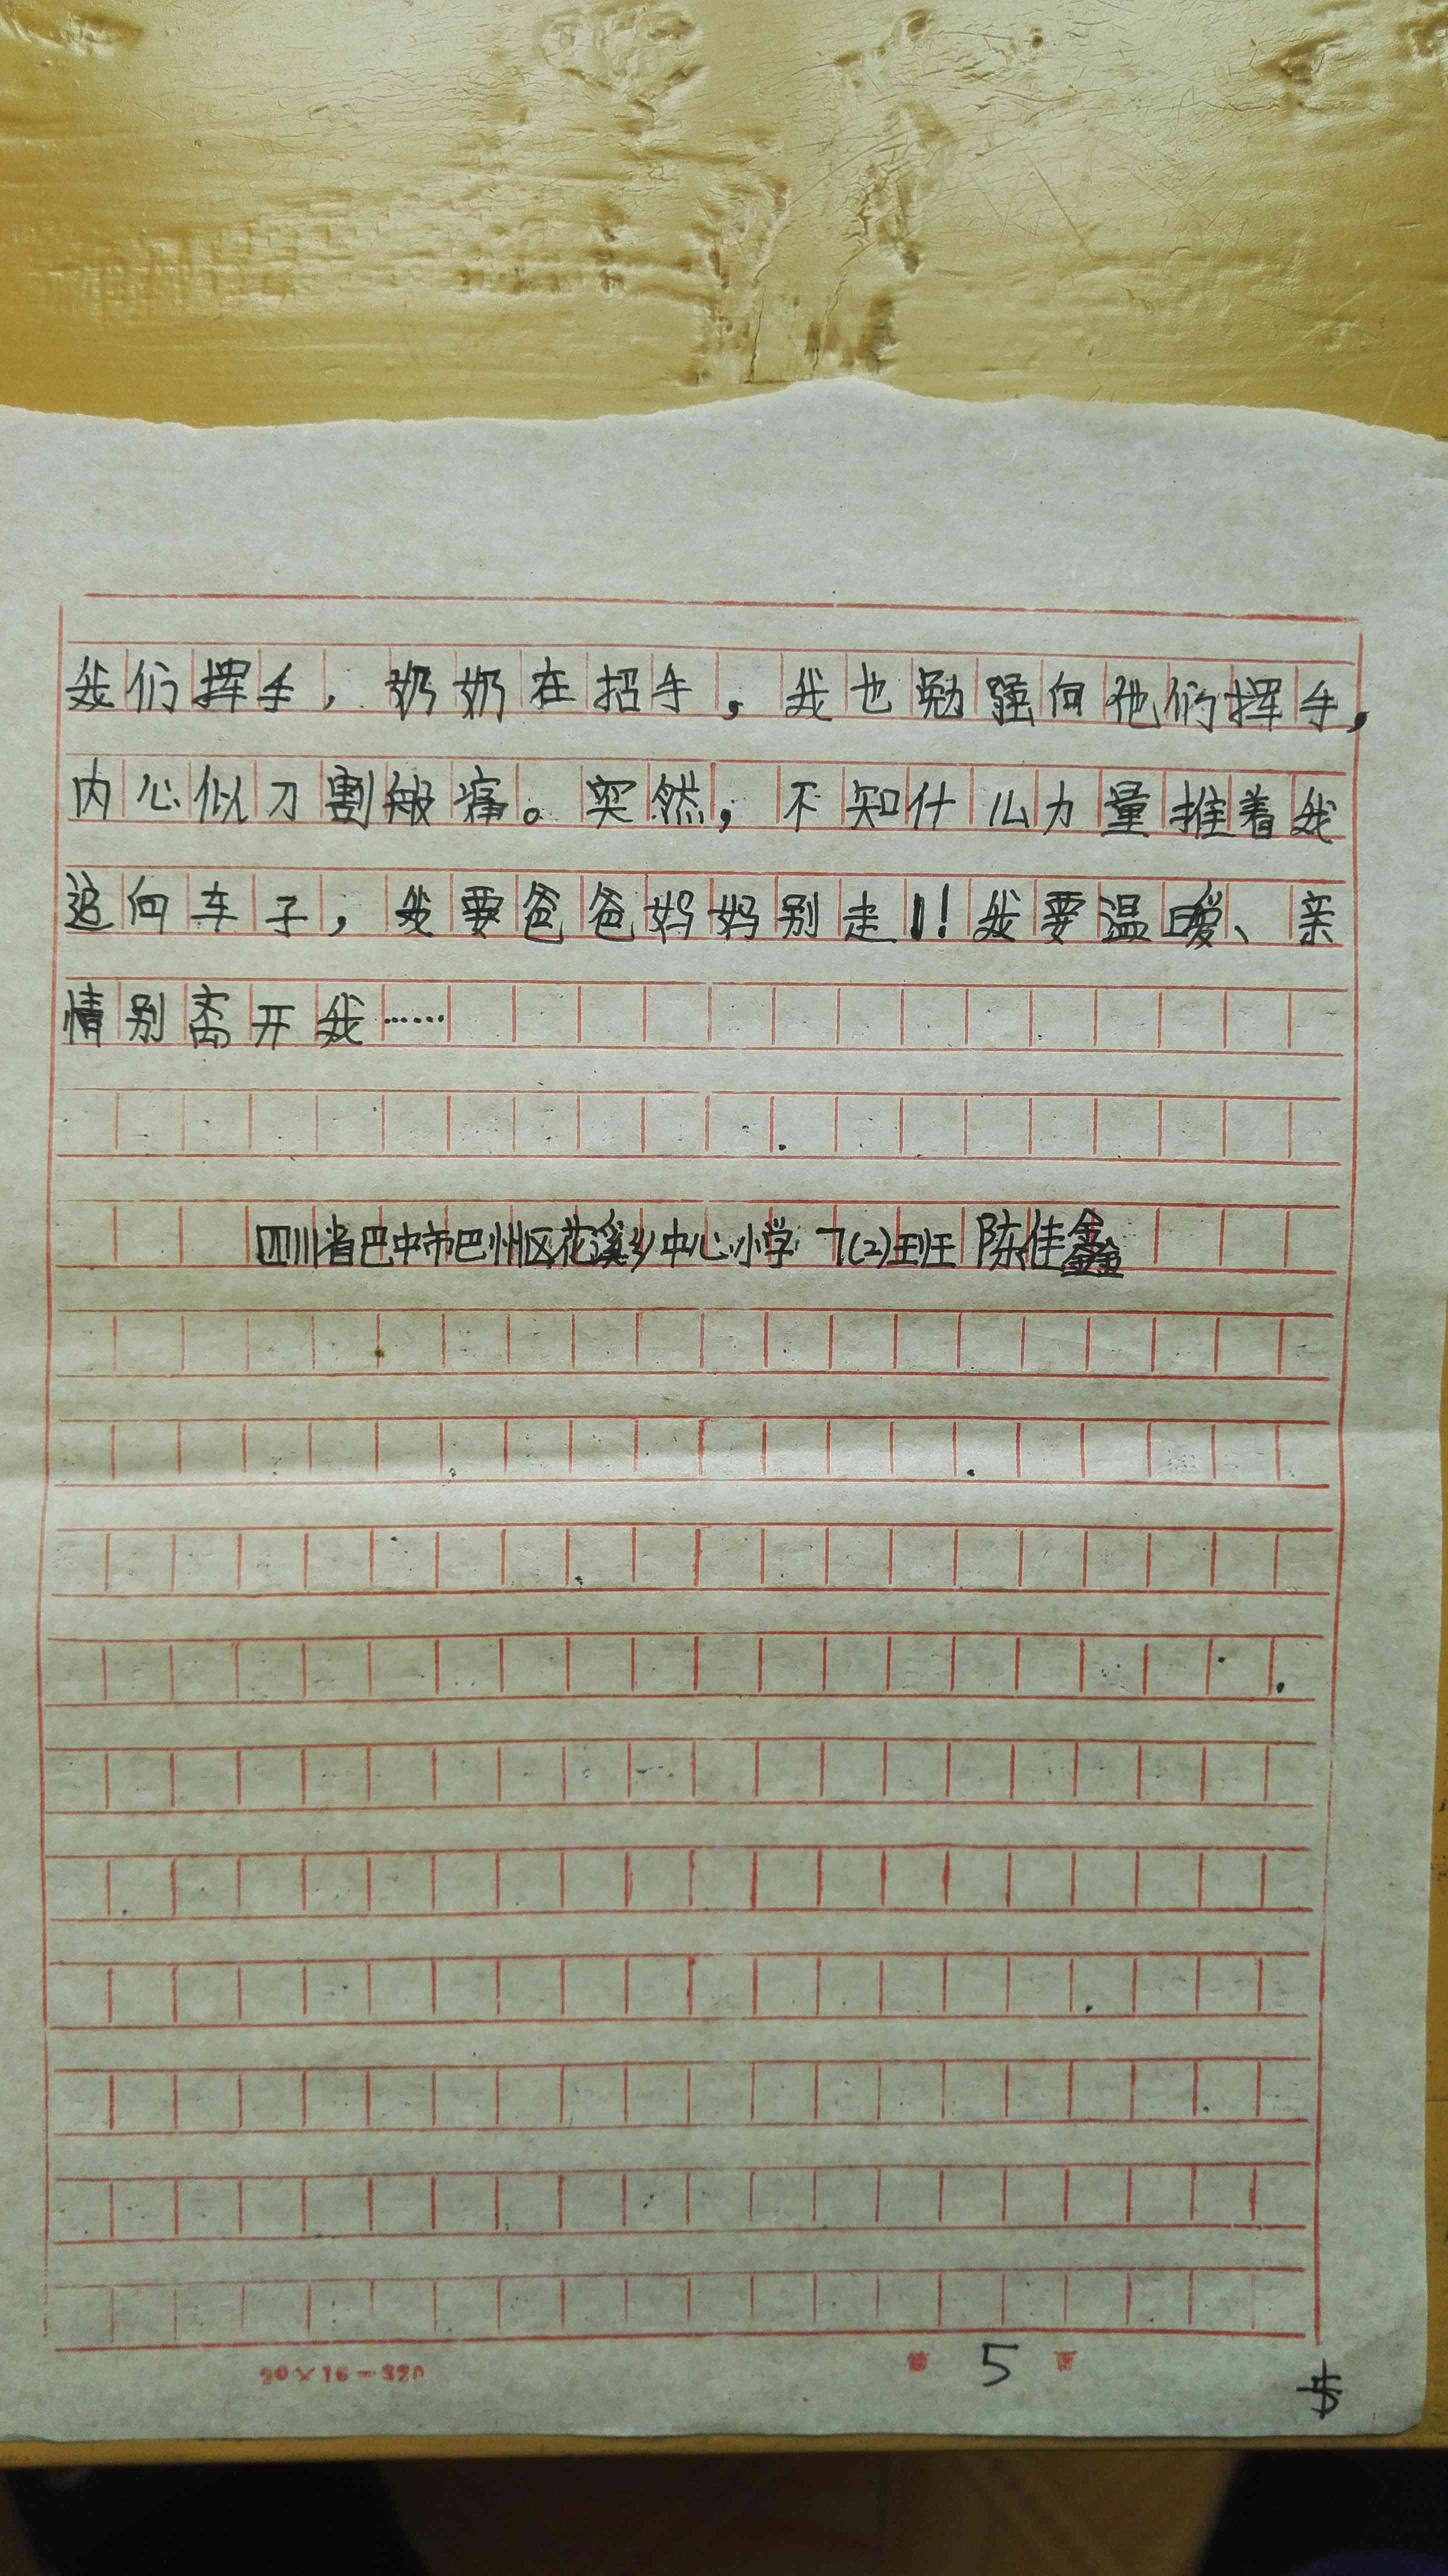 我们挥手，奶奶在招手，我也勉强向他们挥手，
内心似刀割般痛。突然，不知什么力量推着我
追向车子，我要爸爸妈妈别走！！我要温暖、亲
情别离开我……
四川省巴中市巴州区花溪乡中心小学 7(2)班 陈佳鑫
20×16=320
第 5 页